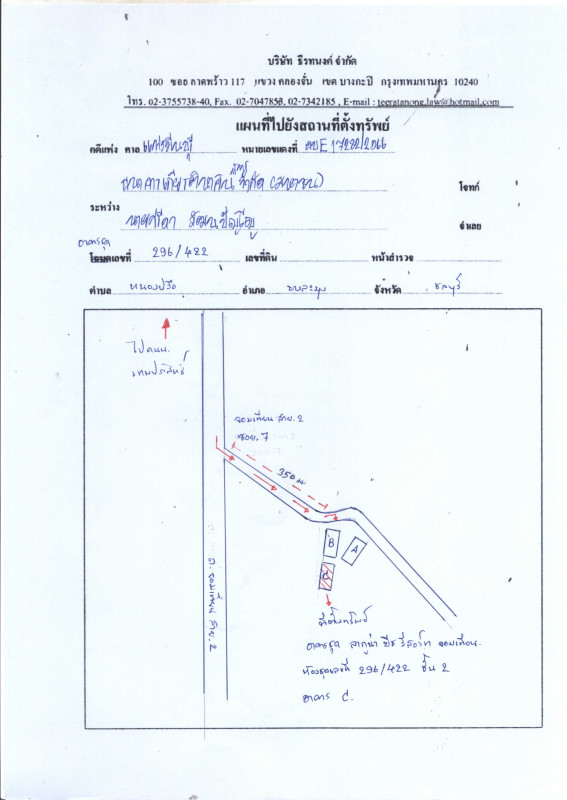 บริษัท ธีรทนงค์ จำกัด
100 ซอย ลาดพร้าว 117 แขวง คลองจั่น เขต บางกะปิ กรุงเทพมหานคร 10240
โทร. 02-3755738-40, Fax. 02-7047853, 02-7342185 , E-mail : teeratanong.law@hotmail.com
แผนที่ไปยังสถานที่ตั้งทรัพย์
คดีแพ่ง ศาล หมายเลขแดงที่ ผบE17222/2566
ธนาคารเกียรตินาคินภัทร จำกัด (มหาชน) โจทก์
ระหว่าง
จำเลย
อาคารชุด
โฉนดเลขที่ 296/422 เลขที่ดิน หน้าสำรวจ
ตำบล หนองปรือ อำเภอ บางละมุง จังหวัด ชลบุรี
ไปถนน.
เทพประสิทธิ์
จอมเทียน สาย.2
ซอย.7
350 ม
B
A
C
ถ.จอมเทียน สาย.2
ที่ตั้งทรัพย์
อาคารชุด ลากูน่า บีช รีสอร์ท จอมเทียน.
ห้องชุดเลขที่ 296/422 ชั้น 2
อาคาร C.